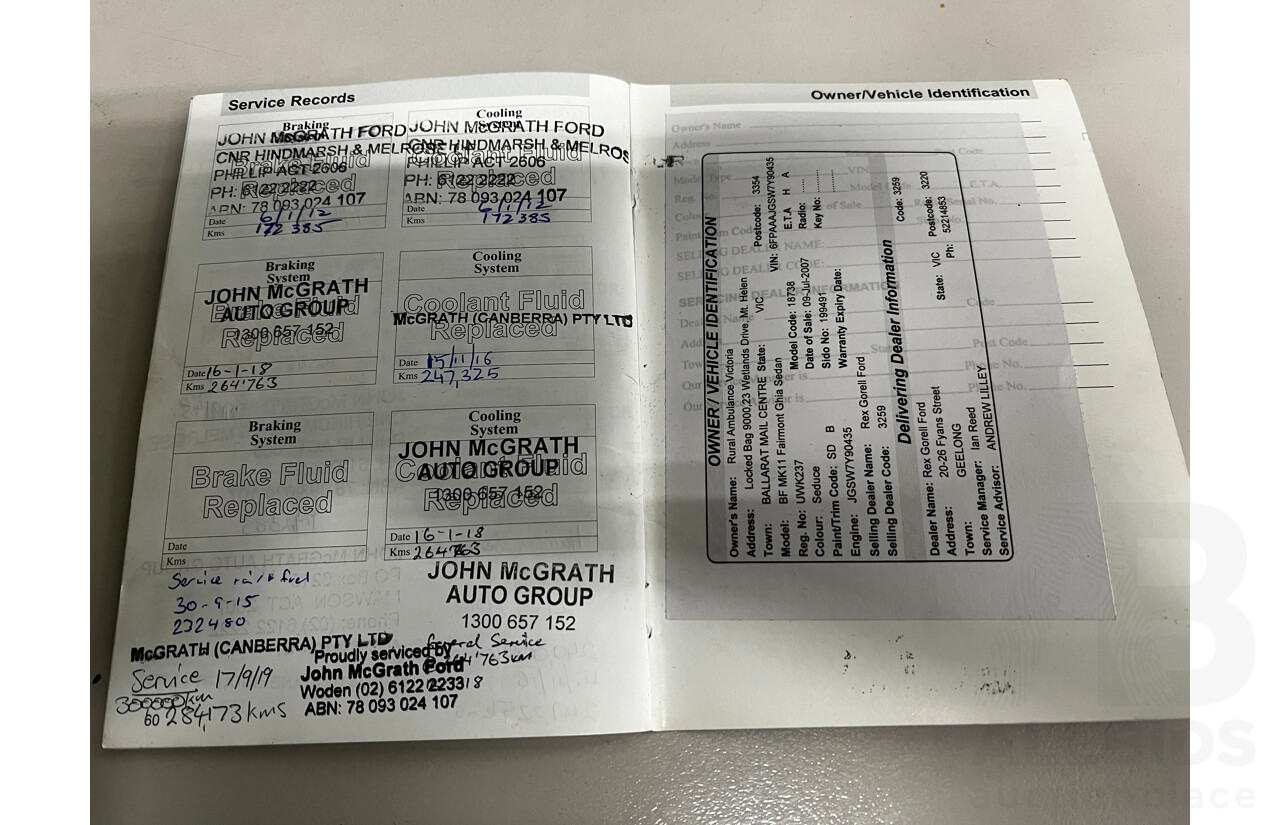 Service Records
Braking
System
JOHN McGRATH FORD
CNR HINDMARSH & MELROSE
PHILLIP ACT 2606
PH: 6122 2222
ABN: 78 093 024 107
Brake Fluid
Replaced
Date 6/1/12
Kms 172 385
Cooling
System
JOHN McGRATH FORD
CNR HINDMARSH & MELROS
PHILLIP ACT 2606
PH: 6122 2222
ABN: 78 093 024 107
Coolant Fluid
Replaced
Date 6/1/12
Kms 172385
Braking
System
JOHN McGRATH
AUTO GROUP
1300 657 152
Brake Fluid
Replaced
Date 16-1-18
Kms 264'763
Cooling
System
Coolant Fluid
McGRATH (CANBERRA) PTY LTD
Replaced
Date 15/11/16
Kms 247,325
Braking
System
Brake Fluid
Replaced
Date
Kms
Cooling
System
JOHN McGRATH
AUTO GROUP
1300 657 152
Coolant Fluid
Replaced
Date 16-1-18
Kms 264'763
Service
30-9-15
232480
JOHN McGRATH
AUTO GROUP
1300 657 152
General Service
264'763km
McGRATH (CANBERRA) PTY LTD
Service 17/9/19
300000km
60 284,173 kms
Proudly serviced by
John McGrath Ford
Woden (02) 6122 2233
ABN: 78 093 024 107
Owner/Vehicle Identification
Owner's Name
Address
OWNER / VEHICLE IDENTIFICATION
Owner's Name: Rural Ambulance Victoria
Address: Locked Bag 9000,23 Wetlands Drive, Mt. Helen
Town: BALLARAT MAIL CENTRE State: VIC Postcode: 3354
Model: BF MK11 Fairmont Ghia Sedan VIN: 6FPAAAJGSW7Y90435
Reg. No: UWK237 Model Code: 18738 E.T.A H A
Colour: Seduce Date of Sale: 09-Jul-2007 Radio: ......
Paint/Trim Code: SD B Sido No: 199491 Key No: ..........
Engine: JGSW7Y90435 Warranty Expiry Date:
Selling Dealer Name: Rex Gorell Ford
Selling Dealer Code: 3259
Delivering Dealer Information
Dealer Name: Rex Gorell Ford Code: 3259
Address: 20-26 Fyans Street
Town: GEELONG State: VIC Postcode: 3220
Service Manager: Ian Reed Ph: 52214853
Service Advisor: ANDREW LILLEY